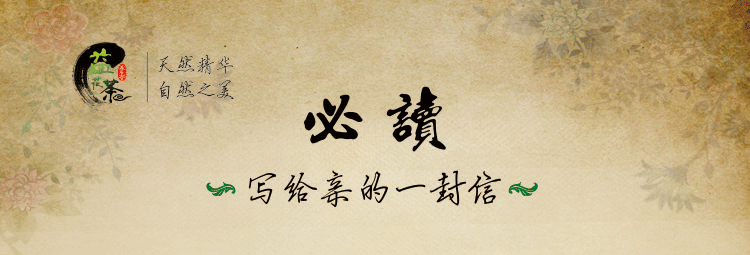 天然精华
自然之美
必讀
写给亲的一封信